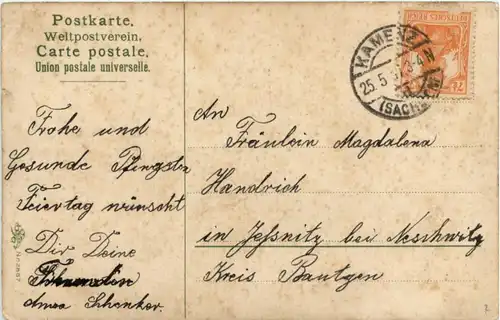 Postkarte.
Weltpostverein.
Carte postale.
Union postale universelle.
KAMENZ
25.5.
3-4 N
(SACHSEN)
DEUTSCHES REICH
7½
Frohe und
Gesunde Pfingsten
Feiertag wünscht
Dir Deine
Anna Schenker.
An
Fräulein Magdalena
Handrich
in Jeßnitz bei Neschwitz
Kreis Bautzen